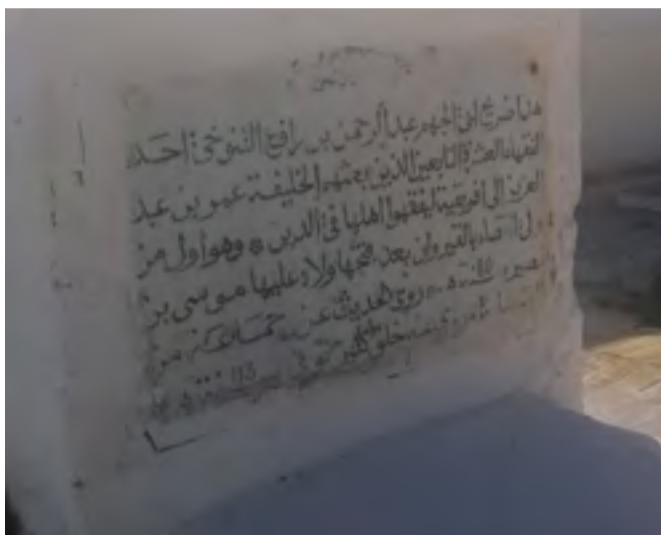 هذا ضريح ابي الجهم عبد الرحمن بن رافع التنوخي احد
الفقهاء العشرة التابعين الذين بعثهم الخليفة عمر بن عبد
العزيز الى افريقية ليفقهوا اهلها في الدين وهو اول من
ولي القضاء بالقيروان بعد فتحها ولاه عليها موسى بن
نصير سنة روى الحديث عن جماعة من
خلق كثير توفي سنة